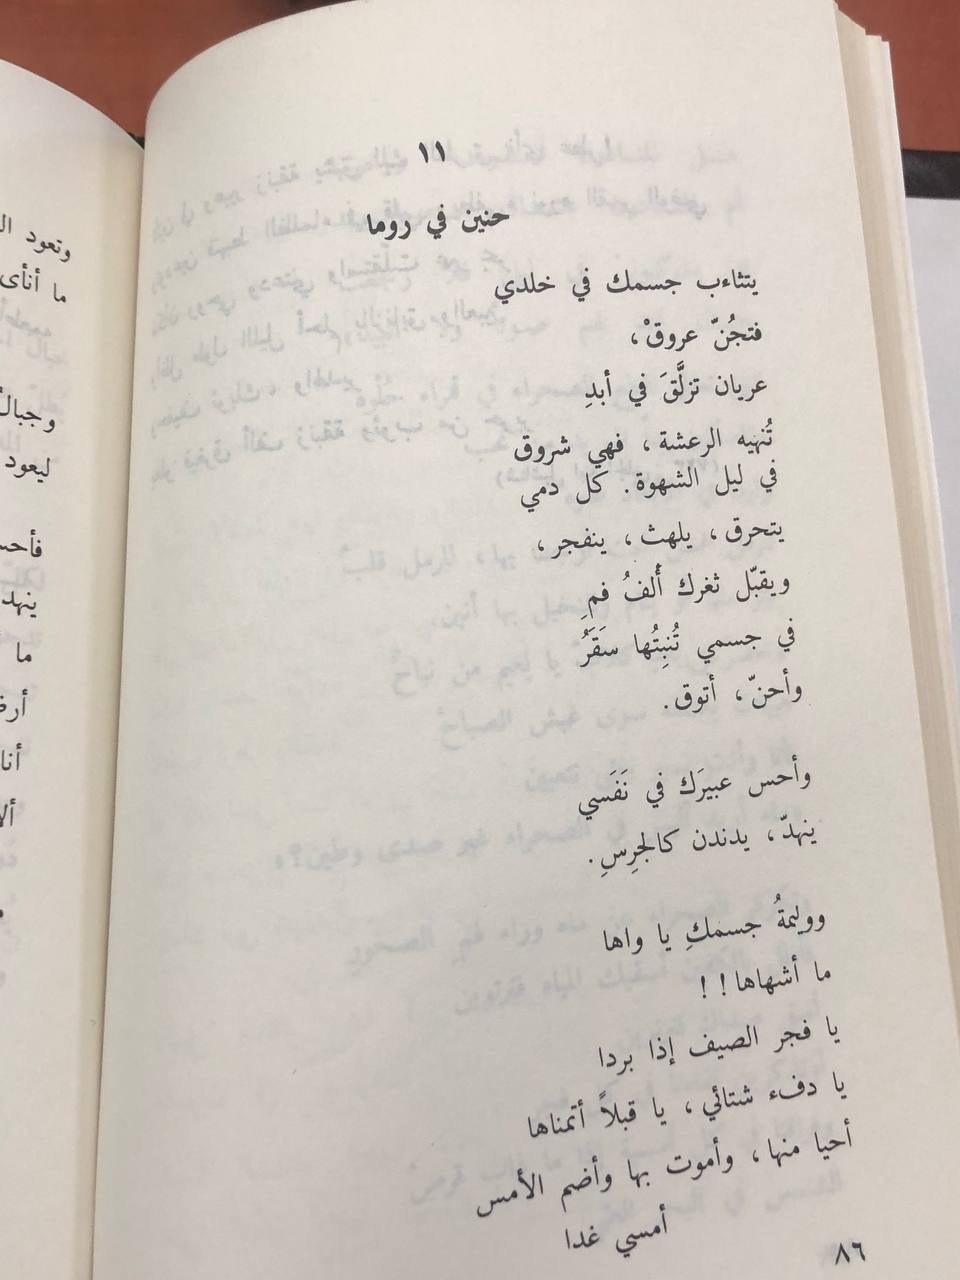 ١١
حنين في روما
يتثاءب جسمك في خلدي
فتجُنّ عروقْ ،
عريان تزلَّقَ في أبدِ
تُنهيه الرعشة ، فهي شروق
في ليل الشهوة . كل دمي
يتحرق ، يلهث ، ينفجر ،
ويقبّل ثغرك ألفُ فمِ
في جسمي تُنبِتُها سَقَرُ
وأحنّ ، أتوق .
وأحس عبيرَك في نَفَسي
ينهدّ ، يدندن كالجرِسِ .
ووليمةُ جسمكِ يا واها
ما أشهاها ! !
يا فجر الصيف إذا بردا
يا دفء شتائي ، يا قبلاً أتمناها
أحيا منها ، وأموت بها وأضم الأمس
أمسي غدا
٨٦
ما أنأى
ليعود
ينهد
ما
أنا